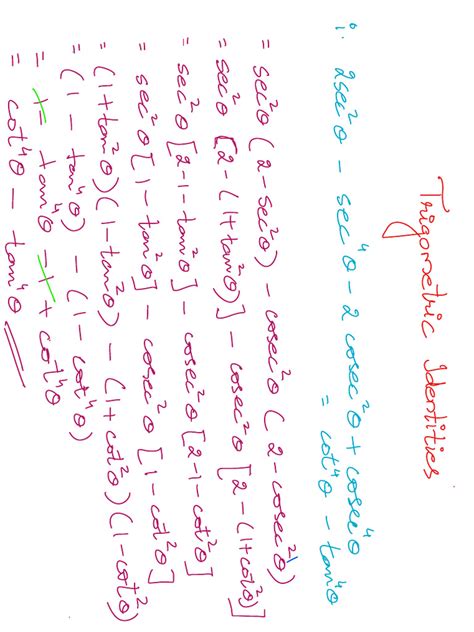 Trigometric Identities
i. 2sec²θ - sec⁴θ - 2cosec²θ + cosec⁴θ
= cot⁴θ - tan⁴θ
= sec²θ (2 - sec²θ) - cosec²θ (2 - cosec²θ)
= sec²θ [2 - (1+tan²θ)] - cosec²θ [2 - (1+cot²θ)]
= sec²θ [2-1-tan²θ] - cosec²θ [2-1-cot²θ]
= sec²θ [1-tan²θ] - cosec²θ [1-cot²θ]
= (1+tan²θ)(1-tan²θ) - (1+cot²θ)(1-cot²θ)
= (1 - tan⁴θ) - (1 - cot⁴θ)
= 1 - tan⁴θ - 1 + cot⁴θ
= cot⁴θ - tan⁴θ